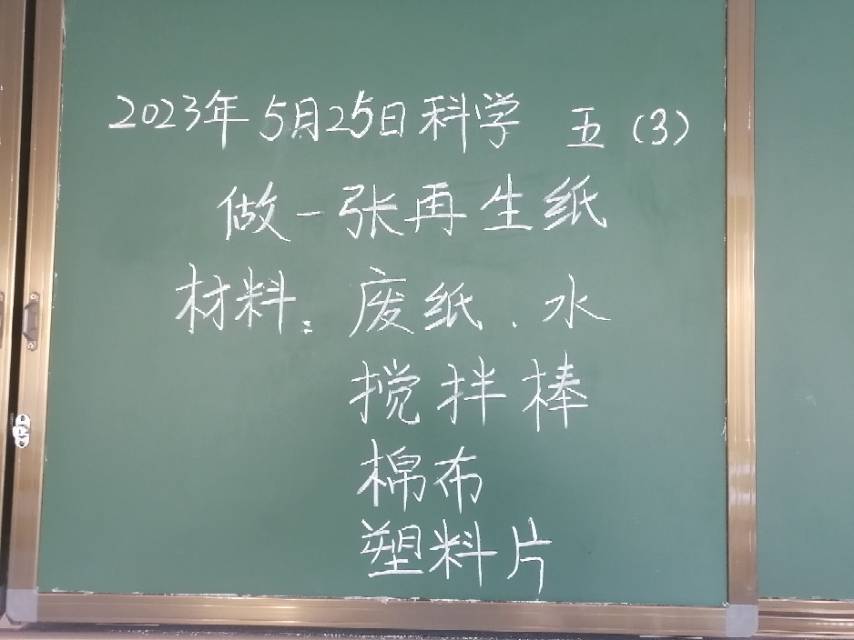 2023年5月25日科学 五(3)
做一张再生纸
材料:废纸、水
搅拌棒
棉布
塑料片